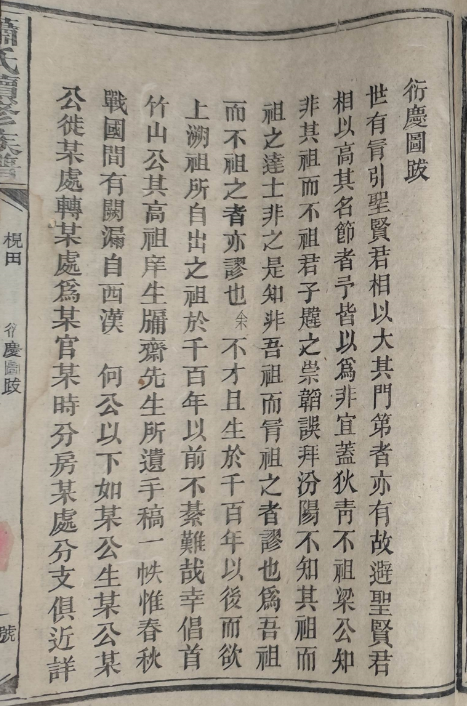 衍慶圖跋
世有冐引聖賢君相以大其門第者亦有故避聖賢君
相以高其名節者予皆以爲非宜蓋狄靑不祖梁公知
非其祖而不祖君子韙之崇韜誤拜汾陽不知其祖而
祖之達士非之是知非吾祖而冐祖之者謬也爲吾祖
而不祖之者亦謬也余不才且生於千百年以後而欲
上溯祖所自出之祖於千百年以前不綦難哉幸倡首
竹山公其高祖庠生牗齋先生所遺手稿一帙惟春秋
戰國間有闕漏自西漢 何公以下如某公生某公某
公徙某處轉某處爲某官某時分房某處分支俱近詳
蕭氏續修族譜
梘田
衍慶圖跋
一號